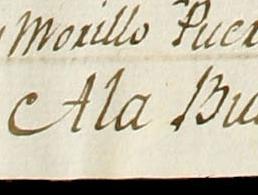 Morillo Puer
Ala Bu